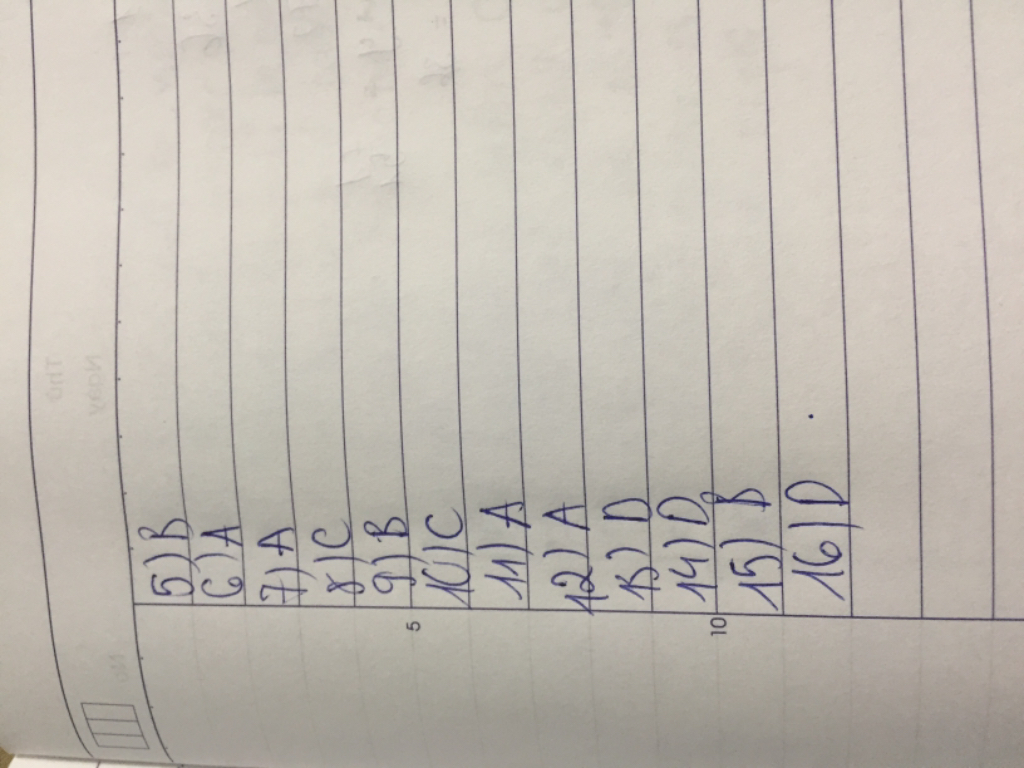 5) B
6) A
7) A
8) C
9) B
10) C
11) A
12) A
13) D
14) D
15) B
16) D
5
10
No